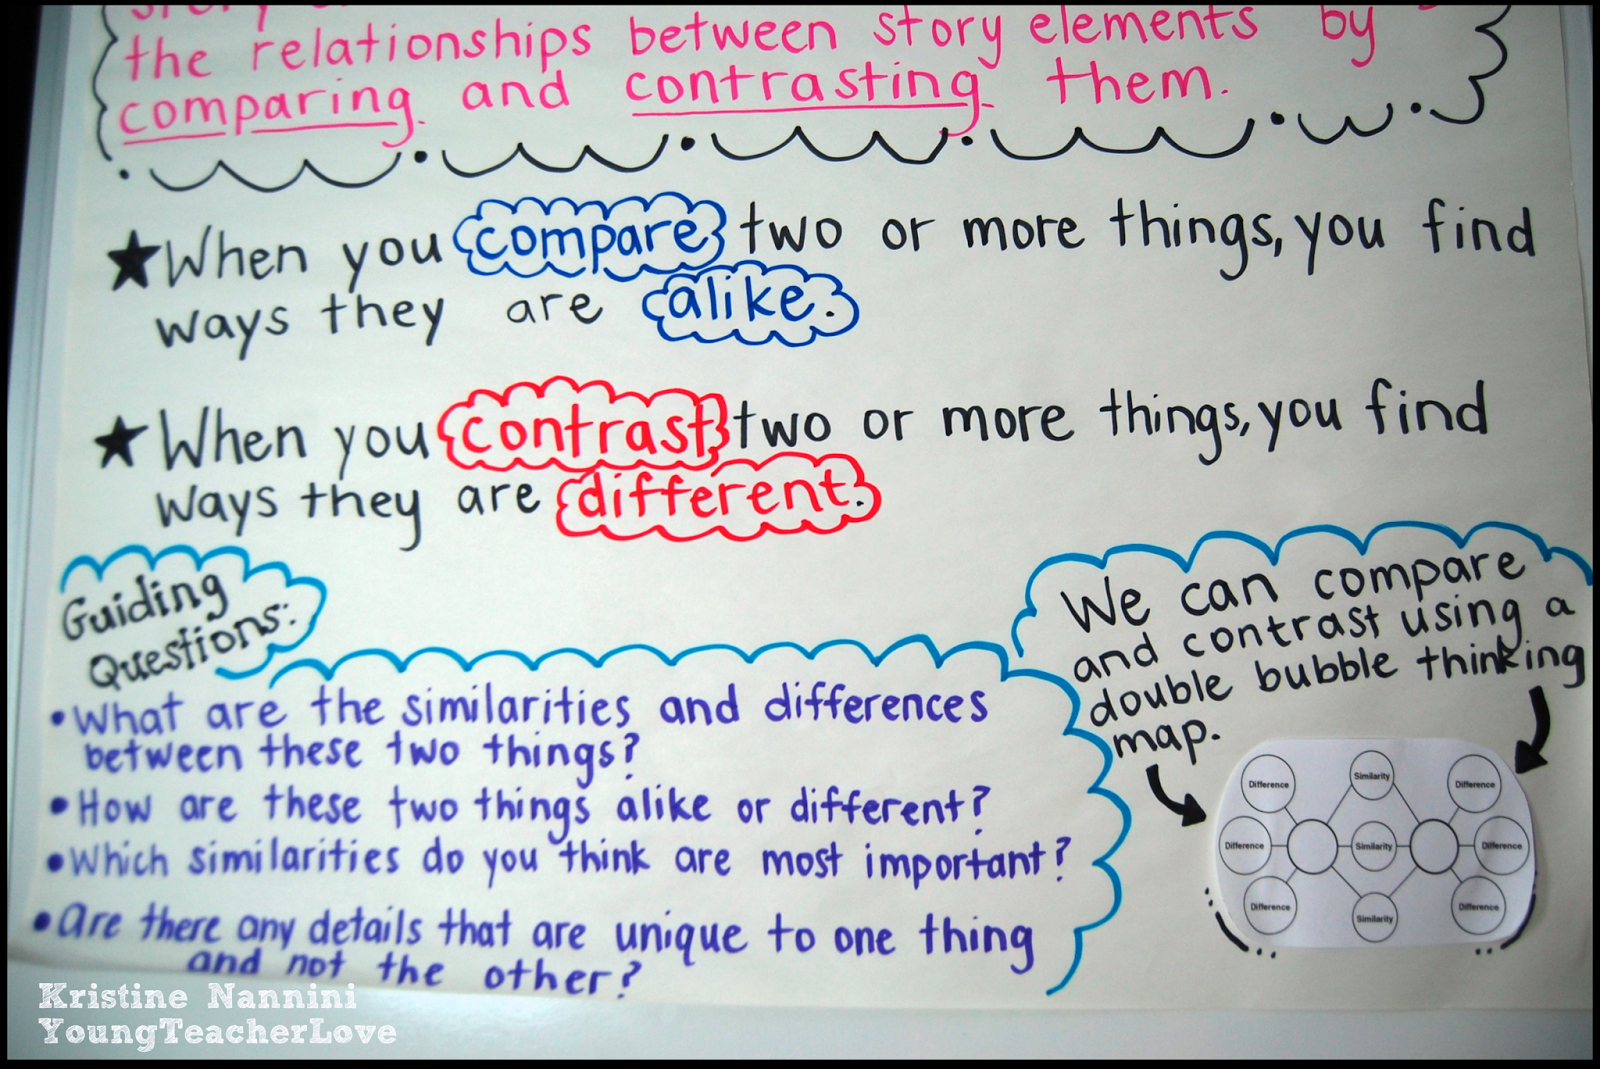 story
the relationships between story elements by
comparing and contrasting them.
★When you compare two or more things, you find
ways they are alike.
★When you contrast two or more things, you find
ways they are different.
Guiding
Questions:
•What are the similarities and differences
between these two things?
•How are these two things alike or different?
•Which similarities do you think are most important?
•Are there any details that are unique to one thing
and not the other?
We can compare
and contrast using a
double bubble thinking
map.
Difference Similarity Difference
Difference Similarity Difference
Difference Similarity Difference
Kristine Nannini
YoungTeacherLove